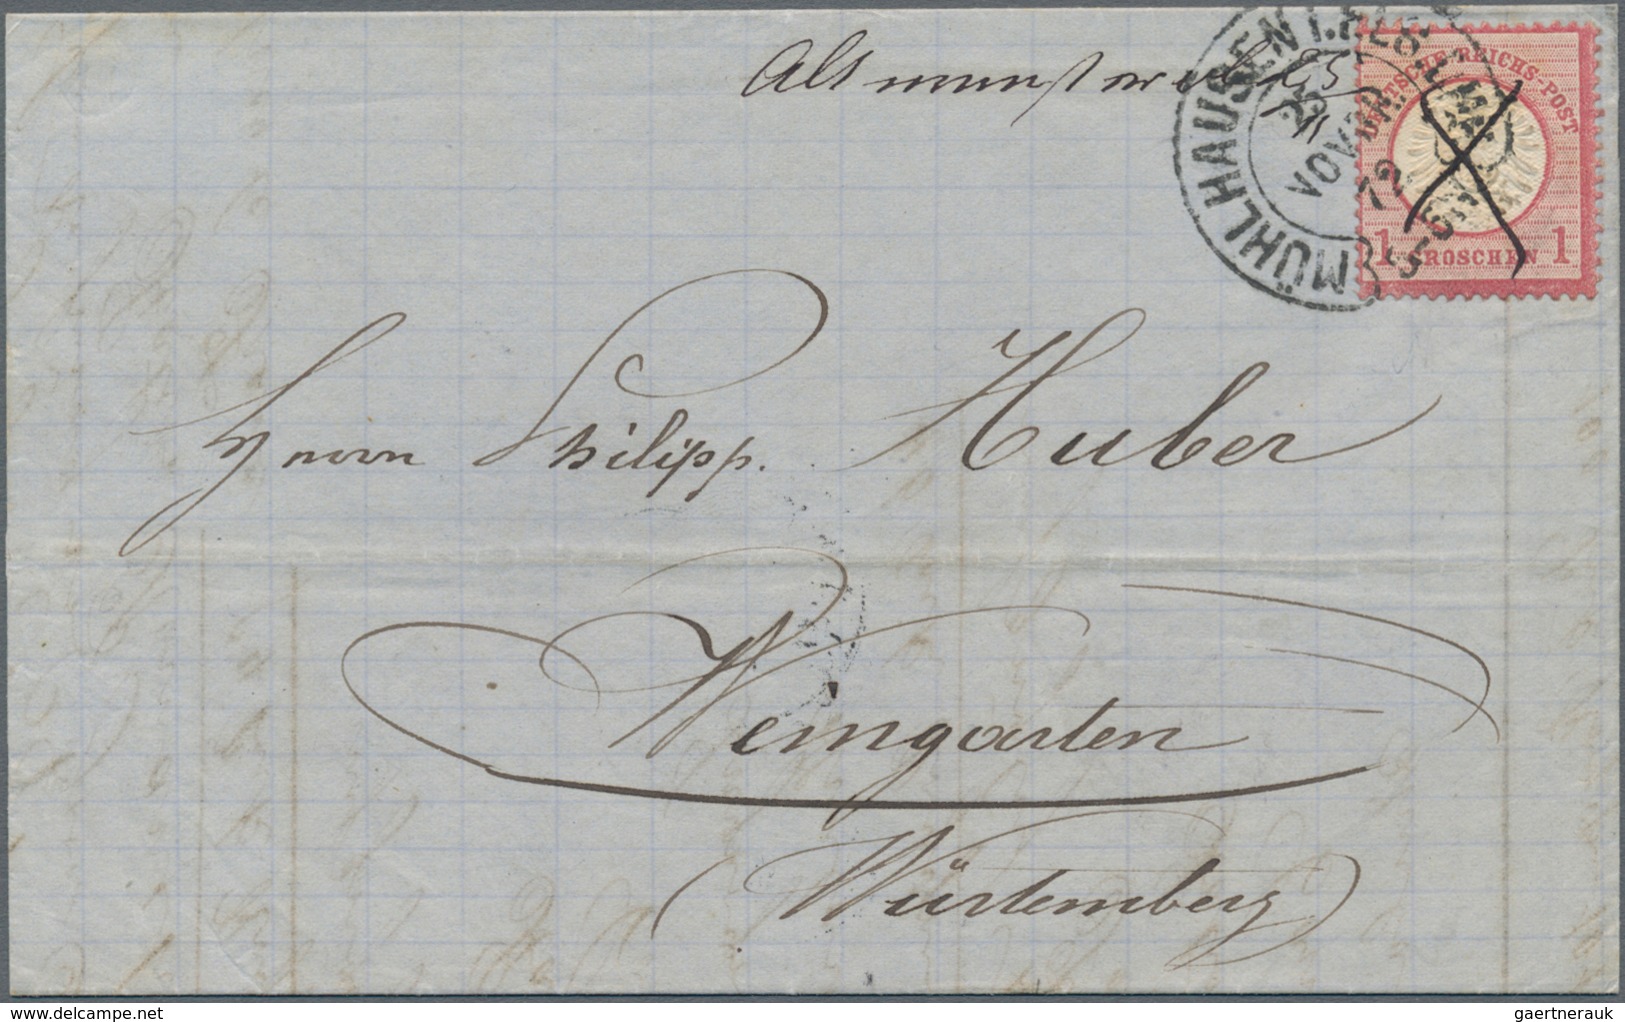 Altmünsterol 25/11
MÜHLHAUSEN I. ELS.
25
NOVBR.
72
DEUTSCHE REICHS-POST
1 GROSCHEN 1
Herrn Philipp Huber
Weingarten
(Würtemberg)
gaertnerauk